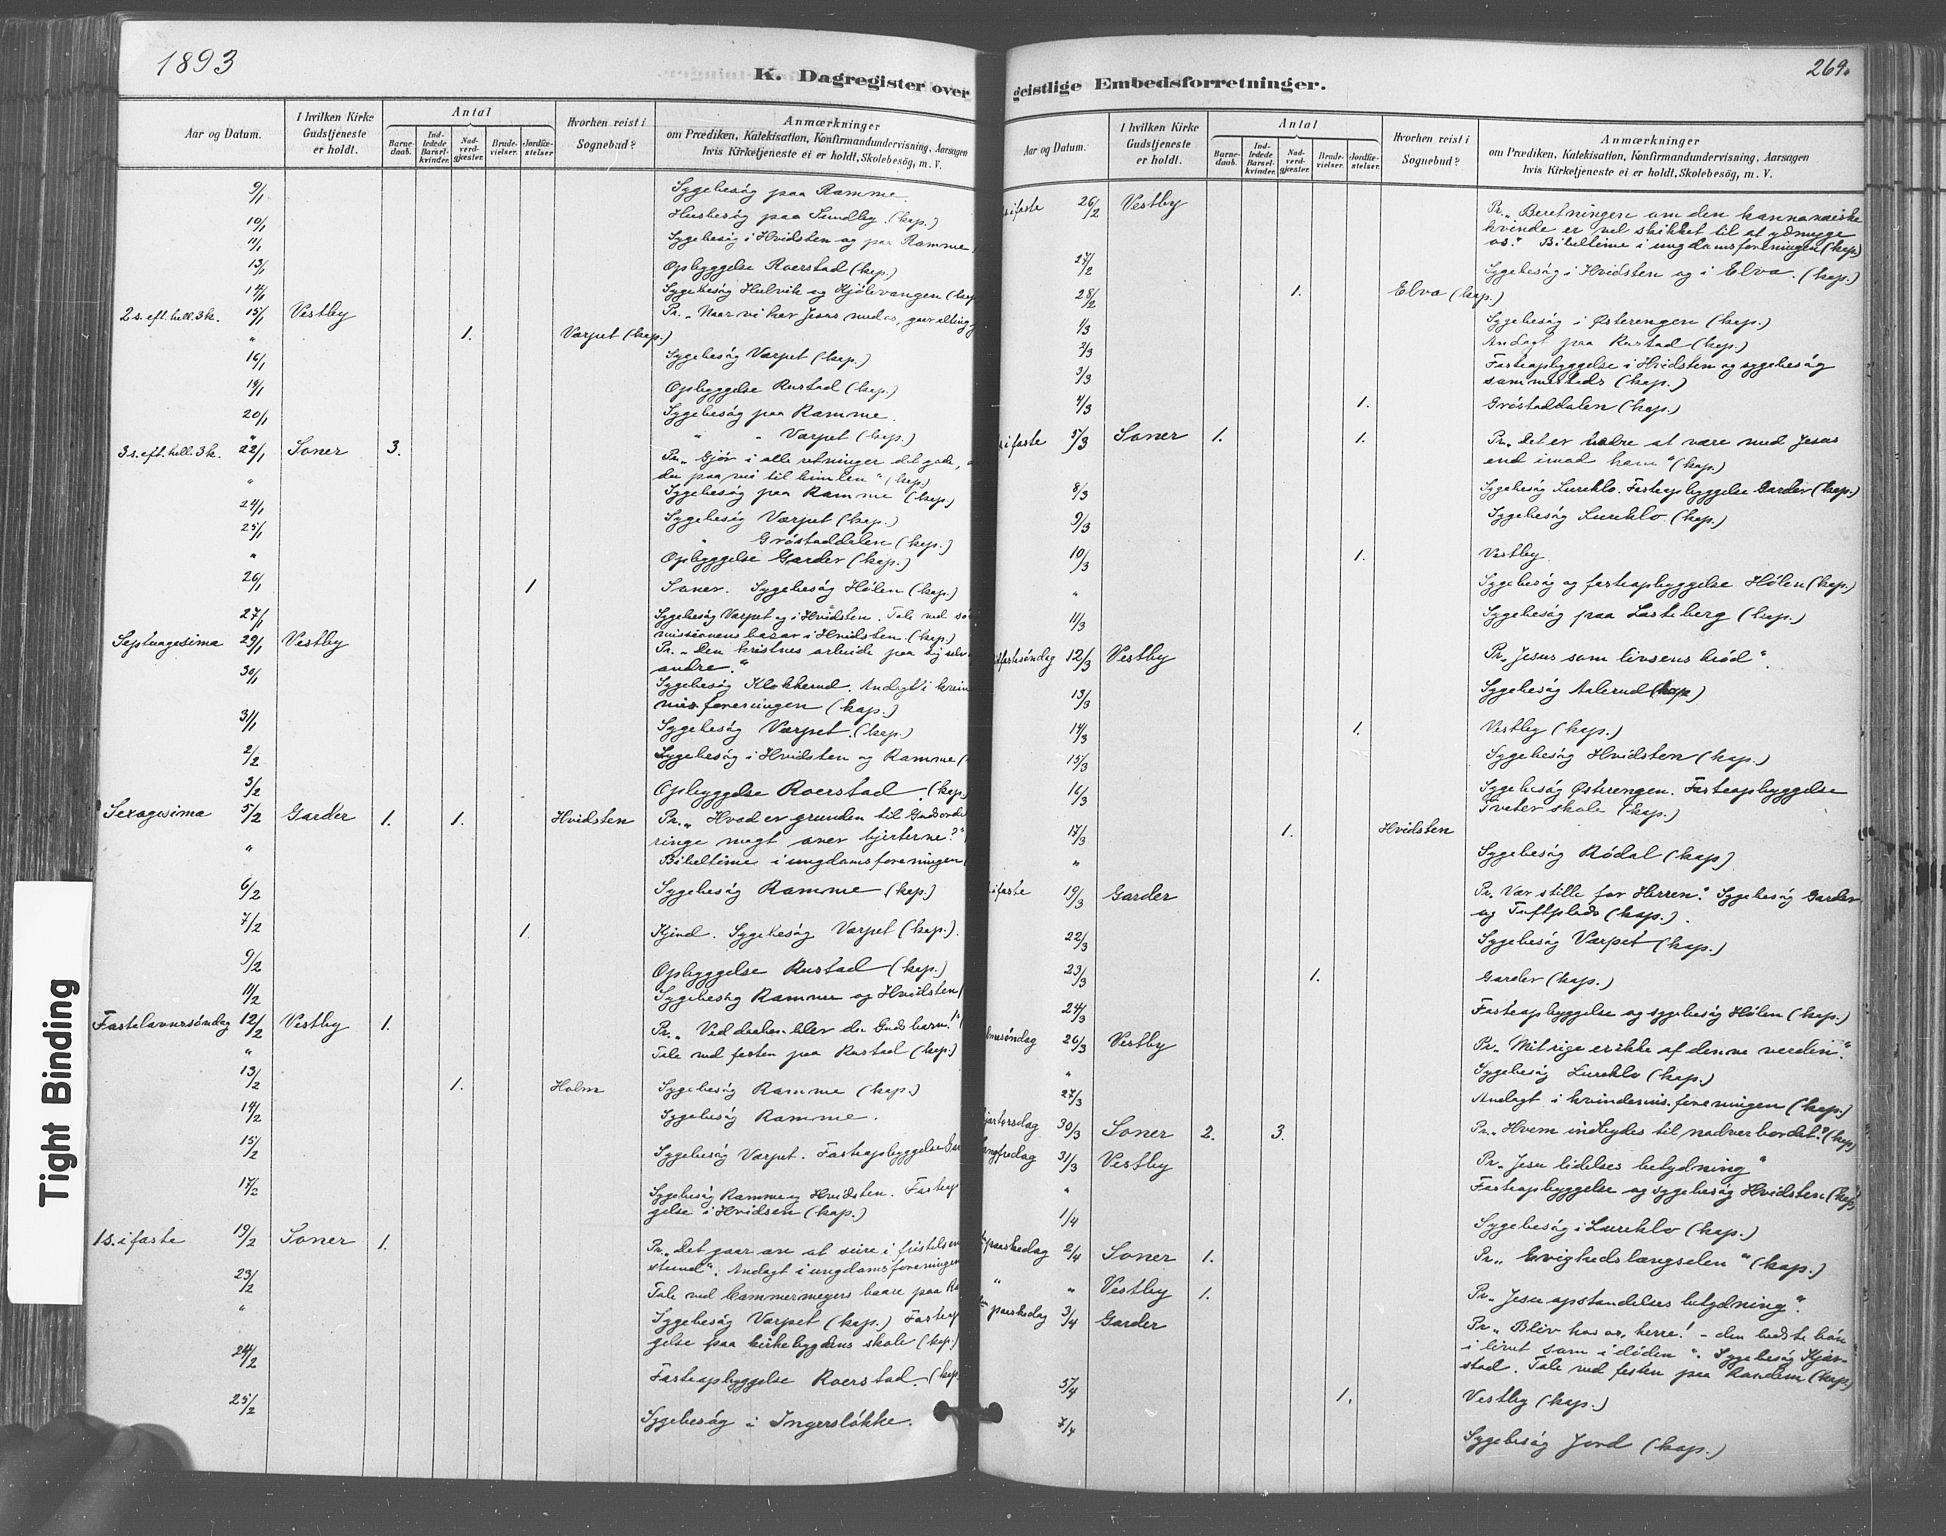 1893
K. Dagregister over
Aar og Datum.
I hvilken Kirke Gudstjeneste er holdt.
Antal
Barne-daab.
Ind-ledede Barsel-kvinder.
Nad-verd-gjester.
Brude-vielser.
Jordfæ-stelser
Hvorhen reist i Sognebud?
Anmærkninger
om Prædiken, Katekisation, Konfirmandundervisning, Aarsagen
hvis Kirketjeneste ei er holdt, Skolebesøg, m. V.
9/1 Sygebesøg paa Ramme.
10/1 Husbesøg paa Sundby. (kap.)
11/1 Sygebesøg i Hvidsten og paa Ramme
13/1 Opbyggelse Roerstad (kap.)
14/1 Sygebesøg Hulvik og Kjølevangen (kap
2 s. eft. hell. 3 k. 15/1 Vestby Pr. „Naar vi har Jesus med os, gaar alting
" 1. Varpet (kap.)
16/1 Sygebesøg Varpet (kap.)
19/1 Opbyggelse Rustad (kap.)
20/1 Sygebesøg paa Ramme.
" " " Varpet (kap.)
3 s. eft. hell. 3 k. 22/1 Soner 3. Pr. „Gjør i alle retninger det gode,
du paa vei til himlen" (kap.)
" Sygebesøg paa Ramme (kap.)
24/1 Sygebesøg Varpet (kap.)
25/1 " Grøstaddalen (kap.)
" Opbyggelse Garder (kap.)
26/1 1 Soner. Sygebesøg Hølen (kap.)
27/1 Sygebesøg Varpet og i Hvidsten. Tale ved
missionens basar i Hvidsten. (kap.)
Septuagesima 29/1 Vestby Pr. „Den kristnes arbeide paa sig selv
andre"
30/1 Sygebesøg Klokkerud. Andagt i
mis. foreningen (kap.)
31/1 Sygebesøg Varpet. (kap.)
2/2 Sygebesøg i Hvidsten og Ramme (
3/2 Opbyggelse Roerstad (kap)
Sexagesima 5/2 Garder 1. 1. Hvidsten Pr. „Hvad er grunden til Guds ords
ringe magt over hjerterne?"
" Bibeltime i ungdomsforeningen (
6/2 Sygebesøg Ramme (kap.)
7/2 1. Kjind. Sygebesøg Varpet (kap.).
9/2 Opbyggelse Rustad (kap.)
11/2 Sygebesøg Ramme og Hvidsten (
Fastelavnssøndag 12/2 Vestby 1. Pr. „Ved daaben blev du Guds barn!"
" Tale ved festen paa Rustad (kap.)
13/2 1. Holm Sygebesøg Ramme (kap.)
14/2 Sygebesøg Ramme.
15/2 Sygebesøg Varpet. Fasteopbyggelse
17/2 Sygebesøg Ramme og Hvidsten. Fasteop
gelse i Hvidsen (kap.)
1 s. i faste 19/2 Soner 1. Pr. „Det gaar an at seire i fristelsens
stund". Andagt i ungdomsforeningen
23/2 Tale ved Cammermeyers baare paa
" Sygebesøg Varpet (kap.) Fasteop
gelse paa kirkebygdens skole (kap.)
24/2 Fasteopbyggelse Roerstad. (kap
25/2 Sygebesøg i Ingersløkke.
Tight Binding
269.
geistlige Embedsforretninger.
Aar og Datum.
I hvilken Kirke Gudstjeneste er holdt.
Antal
Barne-daab.
Ind-ledede Barsel-kvinder.
Nad-verd-gjester.
Brude-vielser.
Jordfæ-stelser.
Hvorhen reist i Sognebud?
Anmærkninger
om Prædiken, Katekisation, Konfirmandundervisning, Aarsagen
hvis Kirketjeneste ei er holdt, Skolebesøg, m. V.
s i faste 26/2 Vestby Pr. „Beretningen om den kananæiske
kvinde er vel skikket til at ydmyge
os." Bibeltime i ungdomsforeningen (kap.)
27/2 Sygebesøg i Hvidsten og i Elva. (kap.)
28/2 1. Elva (kap.)
1/3 Sygebesøg i Østerengen (kap.)
2/3 Andagt paa Rustad (kap.)
3/3 Fasteopbyggelse i Hvidsten og sygebesøg
sammesteds (kap.)
4/3 1. Grøstaddalen (kap.)
s i faste 5/3 Soner 1. 1. Pr. „Det er bedre at være med Jesus
end imod ham" (kap.)
8/3 Sygebesøg Lureklo. Fasteopbyggelse Garder (kap.)
9/3 Sygebesøg Lureklo (kap.)
10/3 1. Vestby
" Sygebesøg og fasteopbyggelse Hølen (kap.)
11/3 Sygebesøg paa Lasteberg (kap.)
dfastesøndag 12/3 Vestby Pr. „Jesus som livsens brød".
13/3 Sygebesøg Aalerud (kap)
14/3 1. Vestby (kap.)
15/3 Sygebesøg Hvidsten (kap.)
16/3 Sygebesøg Østerengen. Fasteopbyggelse
Tveter skole (kap.)
17/3 1. Hvidsten
" Sygebesøg Rødal (kap)
s. i faste 19/3 Garder Pr. „Vær stille for Herren". Sygebesøg Garder
og Tuftplads (kap.).
22/3 Sygebesøg Varpet (kap.)
23/3 1. Garder (kap.)
24/3 Fasteopbyggelse og sygebesøg Hølen (kap.)
mesøndag 26/3 Vestby Pr. „Mit rige er ikke af denne verden".
" Sygebesøg Lureklo (kap.)
27/3 Andagt i kvindemis. foreningen (kap.)
kjærtorsdag 30/3 Soner 2. 3. Pr. „Hvem indbydes til nadverbordet?" (kap)
angfredag 31/3 Vestby Pr. „Jesu lidelses betydning"
" Fasteopbyggelse og sygebesøg Hvidsten (kap)
1/4 Sygebesøg i Lureklo (kap.)
paaskedag 2/4 Soner 1. Pr. „Evighedslængselen" (kap.)
" " Vestby 1. Pr. „Jesu opstandelses betydning".
paaskedag 3/4 Garder Pr. „Bliv hos os, herre! – den bedste bøn
i livet som i døden". Sygebesøg Kjær-
stad. Tale ved festen paa Randem (kap.)
5/4 1. Vestby (kap.)
7/4 Sygebesøg Jord (kap.)